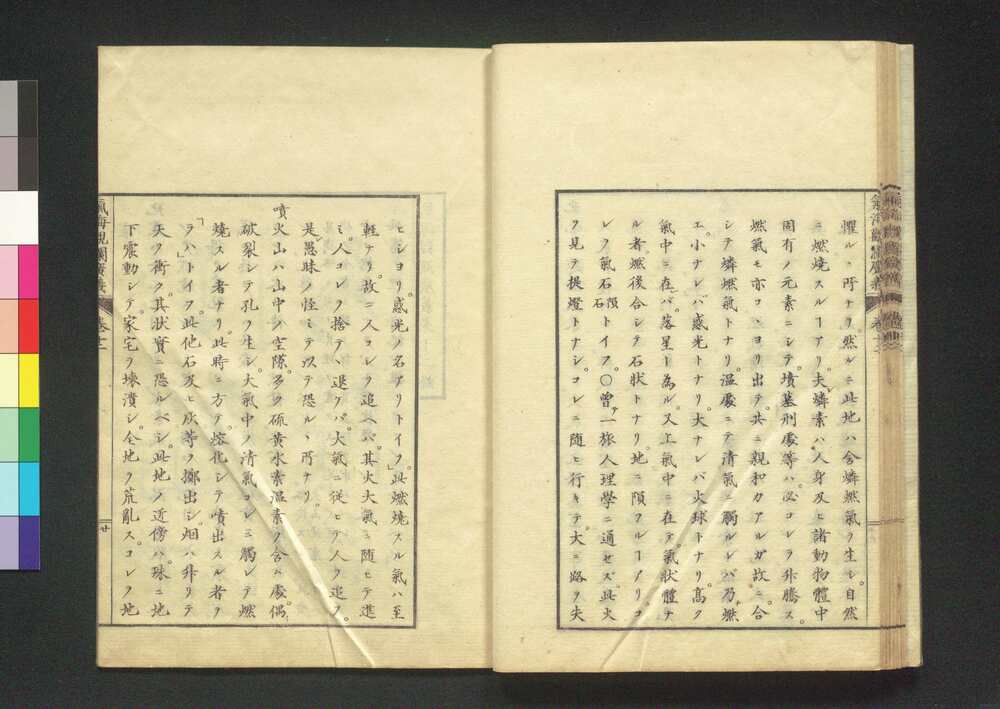 懼ルヽ所ナリ。然ルニ此地ハ含燐燃氣ヲ生シ。自然
ニ燃焼スルヿアリ。夫燐素ハ。人身及ヒ諸動物體中
固有ノ元素ニシテ。墳墓刑處等ハ。必コレヲ升騰ス。
燃氣モ亦コヽヨリ出テ。共ニ親和力アルガ故ニ。合
シテ燐燃氣トナリ。温處ニテ清氣ニ觸ルレバ。乃燃
エ。小ナレバ感光トナリ。大ナレバ火球トナリ。高ク
氣中ニ在バ。落星ト為ル。又上氣中ニ在テ。氣状體ナ
ル者。燃後合シテ石状トナリ。地ニ隕ヿアリ。コ
レヲ氣石隕石トイフ。〇曾テ一旅人理學ニ通セズ。此火
ヲ見テ提燈トナシ。コレニ随ヒ行キテ。大ニ路ヲ失
ヒシヨリ。感光ノ名アリトイフ。」此燃焼スル氣ハ至
軽ナリ。故ニ人コレヲ追ヘバ。其火大氣ニ随ヒテ進
ミ。人コレヲ捨テヽ退ケバ。大氣ニ従ヒテ人ヲ追フ。
是愚昧ノ怪ミテ以テ恐ルヽ所ナリ。
噴火山ハ山中ノ空隙。多ク硫黄水素温素ヲ含ム處。偶
破裂シテ孔ヲ生シ。大氣中ノ清氣コレニ觸レテ燃
焼スル者ナリ。此時ニ方テ。熔化シテ噴出スル者ヲ
「ラハ」トイフ。此他石及ヒ灰等ヲ擲出シ。烟ハ升リテ
天ヲ衝ク。其状實ニ恐ルベシ。此地ノ近傍ハ。殊ニ地
下震動シテ。家宅ヲ壊潰シ。全地ヲ荒亂ス。コレヲ地
氣海觀瀾廣義
卷十二
廿